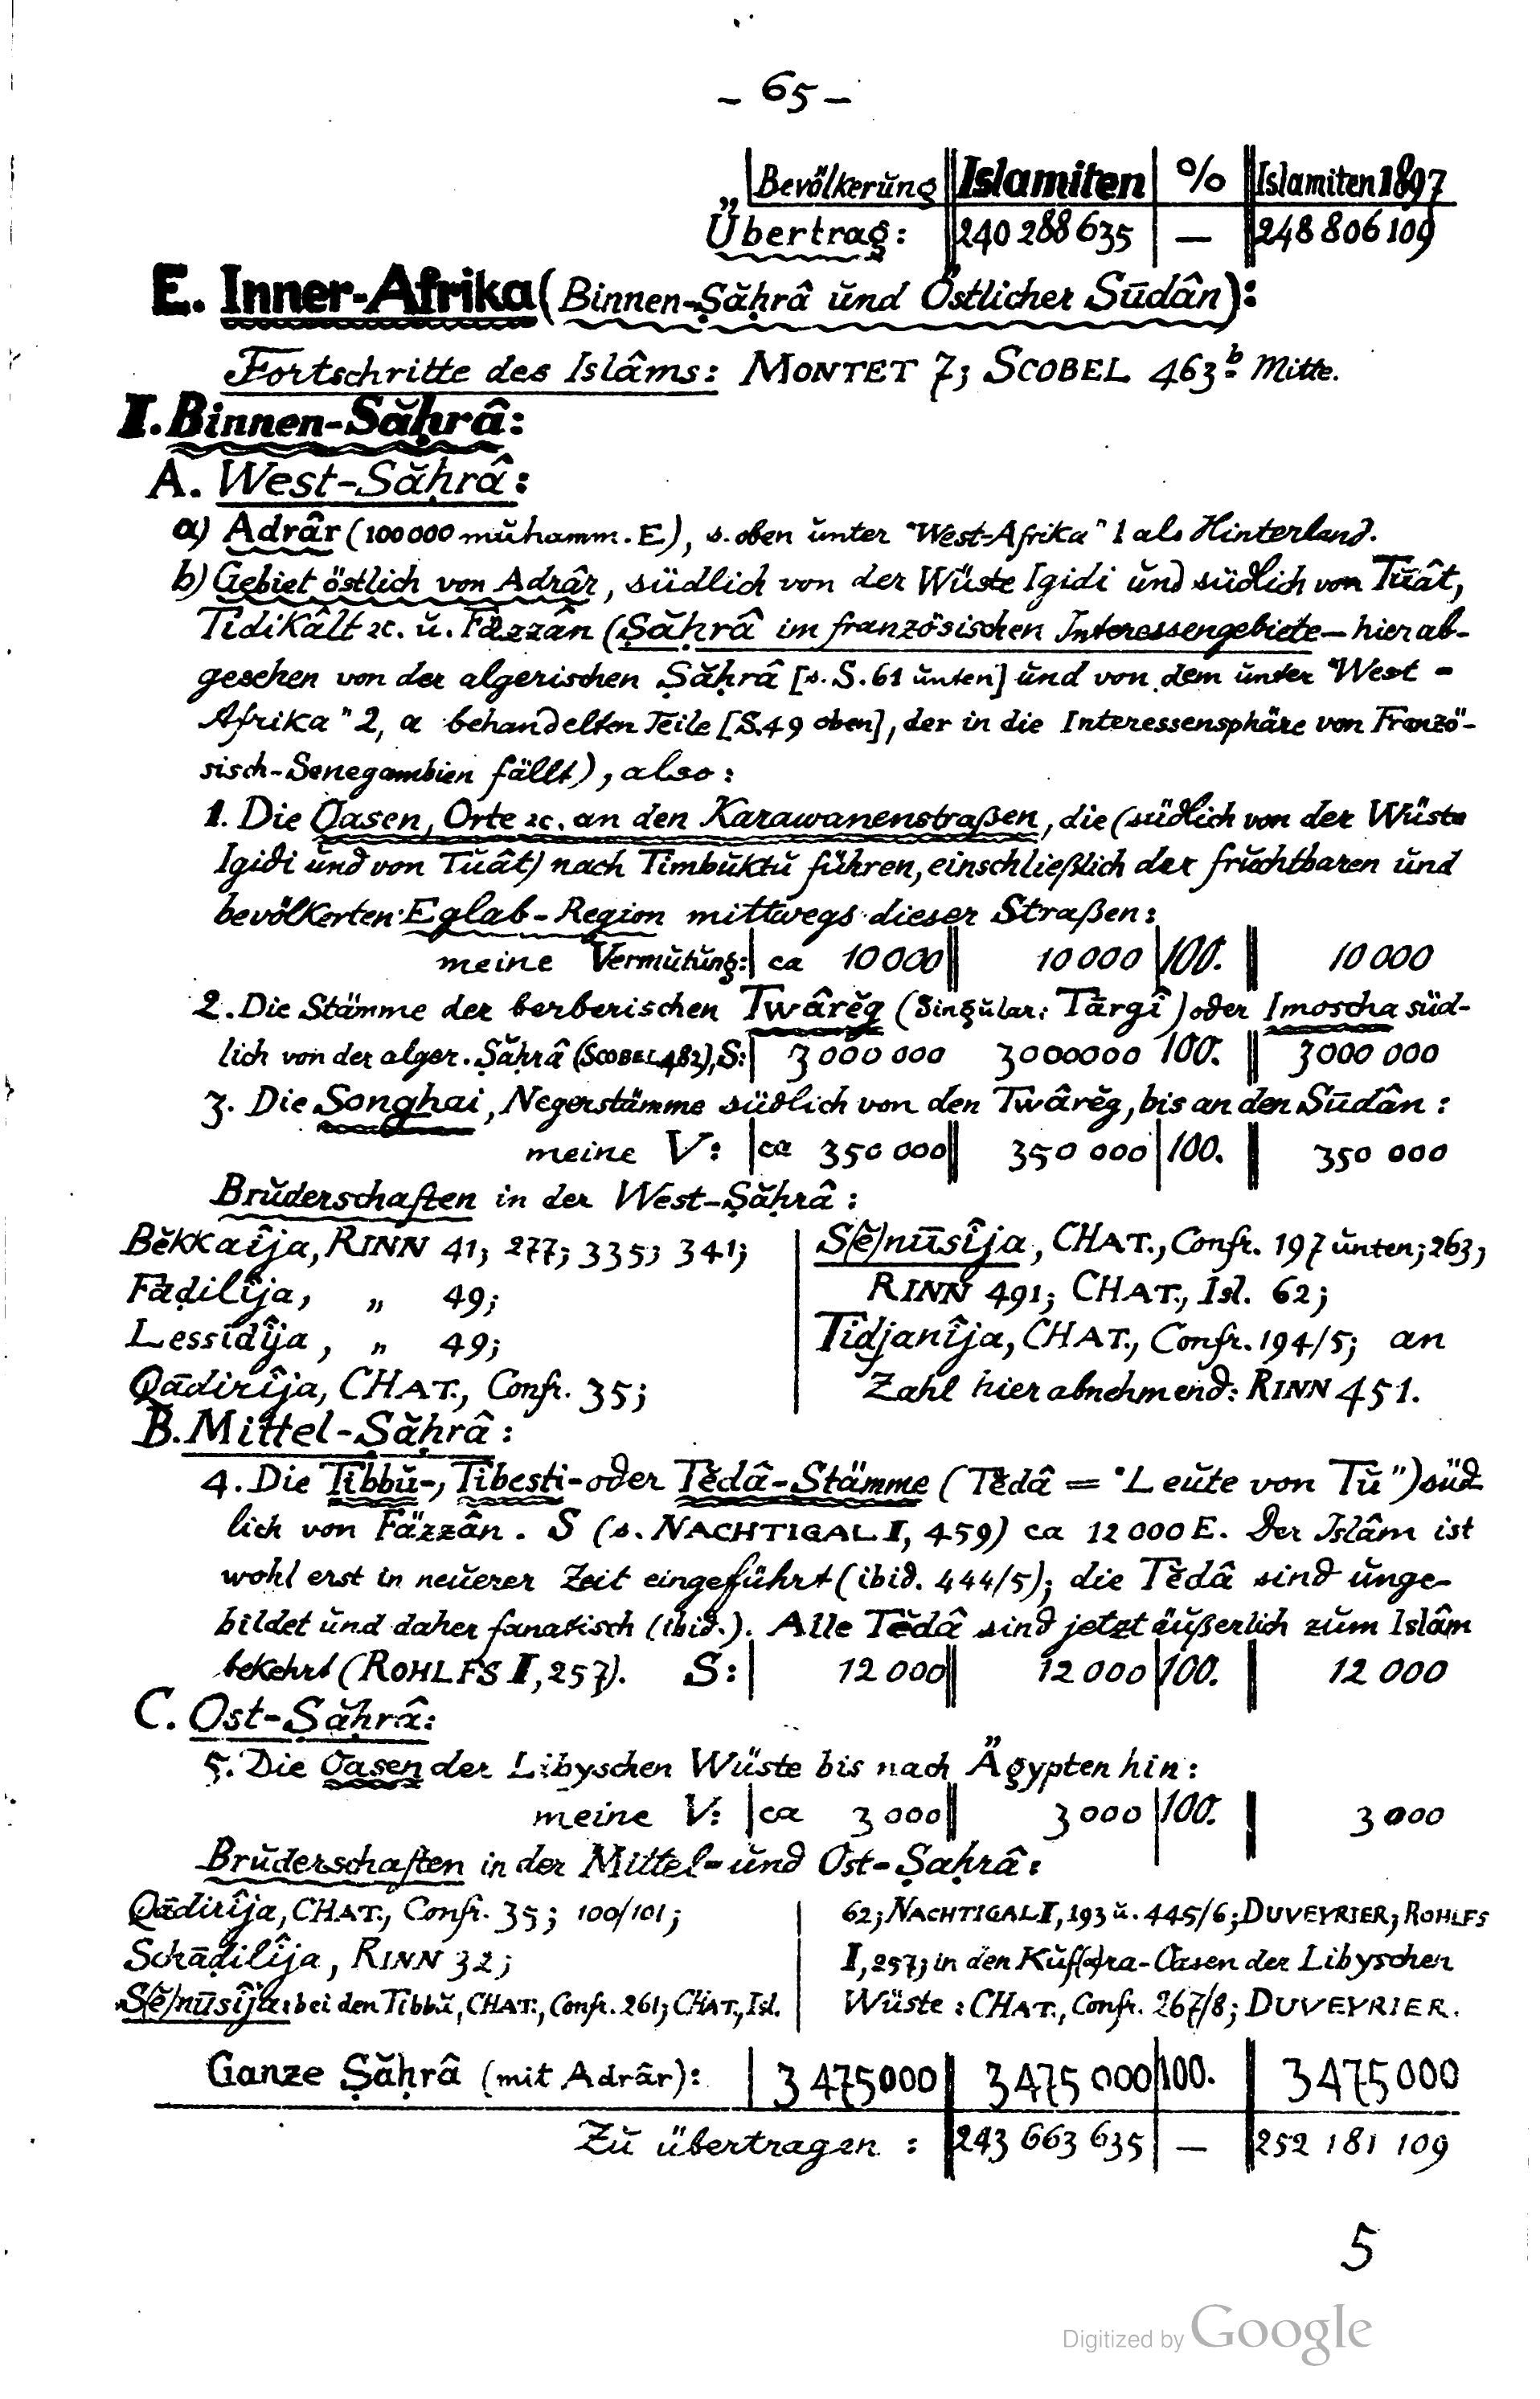 – 65 –
Bevölkerŭng Islamiten % Islamiten 1897
Übertrag: 240 288 635 — 248 806 109
E. Inner-Afrika (Binnen-Ṣăḥrâ ŭnd Östlicher Sūdân):
Fortschritte des Islâms: MONTET 7; SCOBEL 463ᵇ Mitte.
I. Binnen-Săḥrâ:
A. West-Săḥrâ:
a) Adrâr (100 000 mŭhamm. E), s. oben ŭnter "West-Afrika" 1 als Hinterland.
b) Gebiet östlich von Adrâr, südlich von der Wüste Igidi ŭnd südlich von Tŭât,
Tidikâlt ꝛc. ŭ. Fäzzân (Ṣăḥrâ im französischen Interessengebiete – hier ab-
gesehen von der algerischen Ṣăḥrâ [s. S. 61 ŭnten] ŭnd von dem ŭnter "West-
Afrika" 2, a behandelten Teile [S. 49 oben], der in die Interessensphäre von Franzö-
sisch-Senegambien fällt), also:
1. Die Oasen, Orte ꝛc. an den Karawanenstraßen, die (südlich von der Wüste
Igidi ŭnd von Tŭât) nach Timbŭktŭ führen, einschließlich der frŭchtbaren ŭnd
bevölkerten Eglab-Region mittwegs dieser Straßen:
meine Vermŭtŭng: ca 10 000 10 000 100. 10 000
2. Die Stämme der berberischen Twârĕg (Singŭlar: Tārgî) oder Imoscha süd-
lich von der alger. Ṣăḥrâ (SCOBEL 482), S: 3 000 000 3000000 100. 3000 000
3. Die Songhai, Negerstämme südlich von den Twârĕg, bis an den Sūdân:
meine V: ca 350 000 350 000 100. 350 000
Brŭderschaften in der West-Ṣăḥrâ:
Bĕkkaîja, RINN 41; 277; 335; 341;
Fāḍilîja, „ 49;
Lessīdîja, „ 49;
Qādirîja, CHAT., Confr. 35;
S(ĕ)nūsîja, CHAT., Confr. 197 ŭnten; 263;
RINN 491; CHAT., Isl. 62;
Tidjanîja, CHAT., Confr. 194/5; an
Zahl hier abnehmend: RINN 451.
B. Mittel-Săḥrâ:
4. Die Tibbŭ-, Tibesti- oder Tĕdâ-Stämme (Tĕdâ = "Leŭte von Tŭ") süd
lich von Fäzzân. S (s. NACHTIGAL I, 459) ca 12 000 E. Der Islâm ist
wohl erst in neŭerer Zeit eingeführt (ibid. 444/5); die Tĕdâ sind ŭnge-
bildet ŭnd daher fanatisch (ibid.). Alle Tĕdâ sind jetzt äŭßerlich zŭm Islâm
bekehrt (ROHLFS II, 257). S: 12 000 12 000 100. 12 000
C. Ost-Ṣăḥrâ:
5. Die Oasen der Libyschen Wüste bis nach Ägypten hin:
meine V: ca 3 000 3 000 100. 3 000
Brŭderschaften in der Mittel- ŭnd Ost-Ṣaḥrâ:
Qādirîja, CHAT., Confr. 35; 100/101;
Schāḍilîja, RINN 32;
S(ĕ)nūsîja: bei den Tibbŭ, CHAT., Confr. 261; CHAT., Isl.
62; NACHTIGAL I, 193 ŭ. 445/6; DUVEYRIER; ROHLFS
I, 257; in den Kŭf(a)ra-Oasen der Libyschen
Wüste: CHAT., Confr. 267/8; DUVEYRIER.
Ganze Ṣăḥrâ (mit Adrâr): 3 475000 3475 000 100. 3475000
Zŭ übertragen: 243 663 635 — 252 181 109
5
Digitized by Google